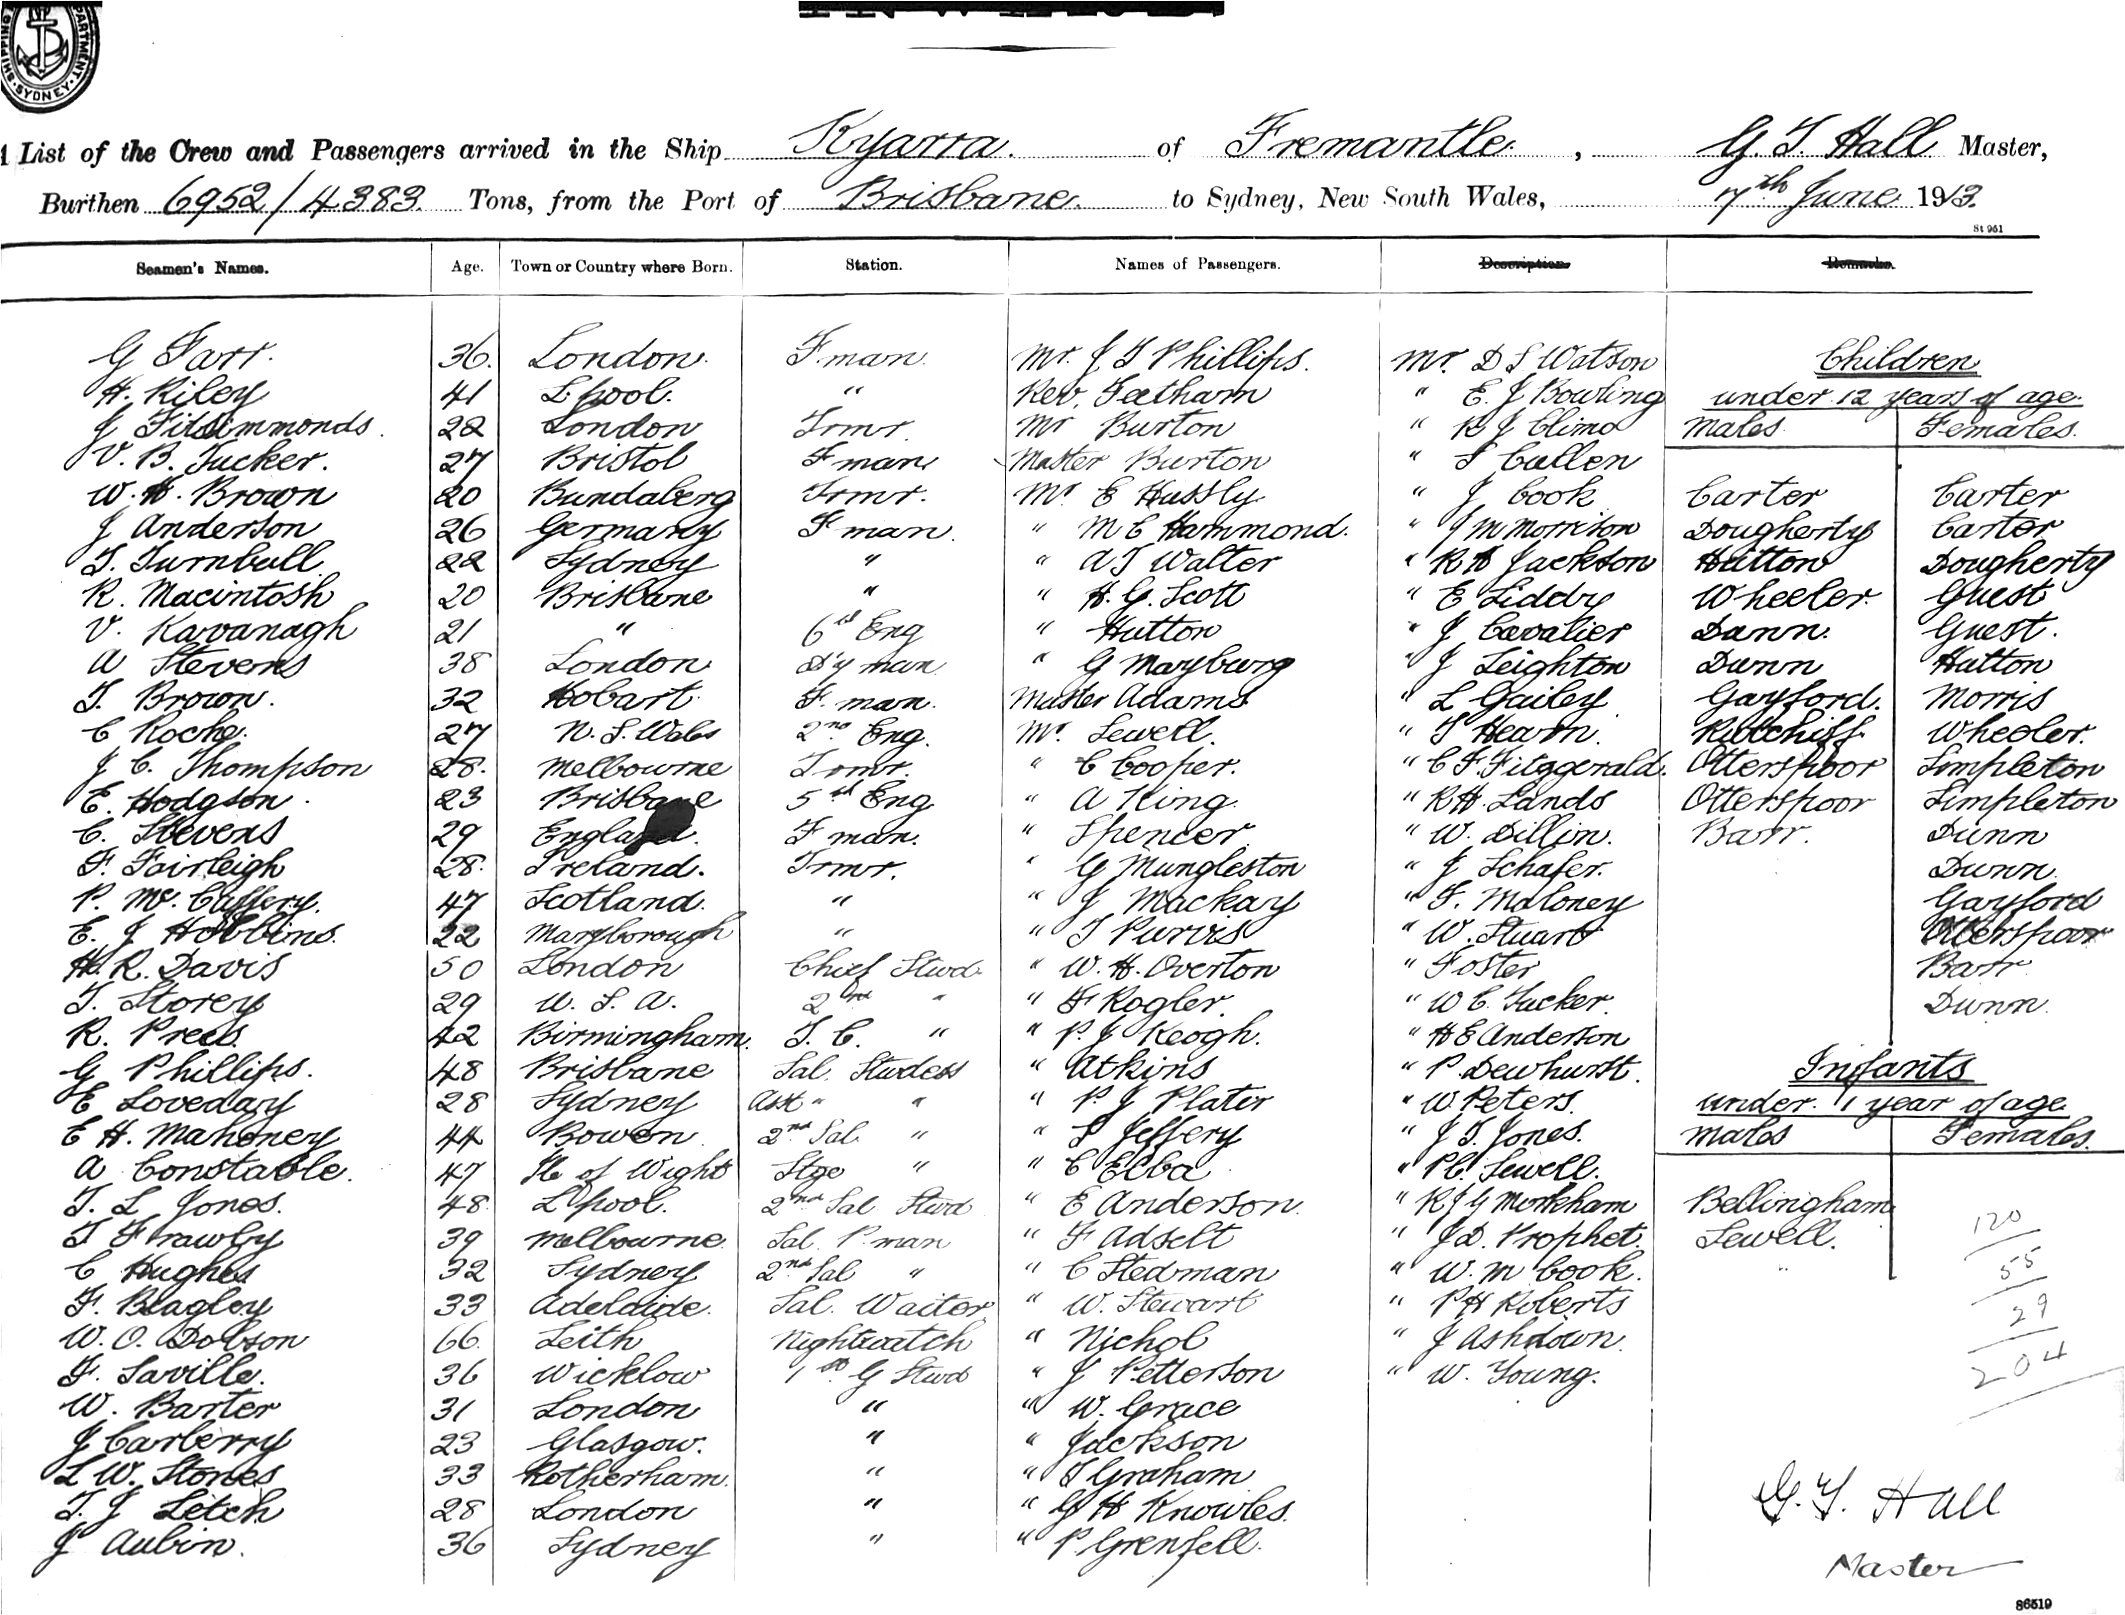 SHIPPING DEPARTMENT SYDNEY
A List of the Crew and Passengers arrived in the Ship Kyarra. of Fremantle. , G. T. Hall Master,
Burthen 6952/4383. Tons, from the Port of Brisbane. to Sydney, New South Wales, 7th June 1913.
St 951
Seamen's Names. Age. Town or Country where Born. Station. Names of Passengers. Description. Remarks.
G Farr. 36. London. F. man. Mr. J S Phillips. Mr. D S Watson Children
H. Riley 41 L'pool. " Rev. Feetham " E. J Bowling under 12 years of age.
J Fitzimmonds. 22 London Trmr. Mr Burton " R J Climo Males Females.
V. B. Tucker. 27 Bristol F man Master Burton " S Cullen
W. H. Brown 20 Bundaberg Trmr. Mr E Hussly " J Cook Carter Carter
J Anderson 26 Germany F man. " M E Hammond. " J M Morrison Dougherty Carter
T. Turnbull 22 Sydney " " A J Walter " R H Jackson Hutton Dougherty
R. Macintosh 20 Brisbane " " H. G. Scott " E Liddy Wheeler. Guest
V. Kavanagh 21 " 6th Eng " Hutton " J Cavalier Dann. Guest.
A Stevens 38 London D'y man " G Maryburg " J Leighton Dunn Hutton
T. Brown. 32 Hobart. F. man. Master Adams " L Gailey Gayford. Morris
C Roche. 27 N. S. Wales 2nd Eng. Mr. Sewell. " T Hearn. Wheeler.
J C. Thompson 28. Melbourne Trmr. " C Cooper. " C F. Fitzgerald. Otterspoor Simpleton
E. Hodgson. 23 Brisbane 5th Eng " A King. " R H. Sands Otterspoor Simpleton
C. Stevens 29 England. F man. " Spencer. " W. Dillin. Barr. Dunn
F. Fairleigh 28. Ireland. Trmr. " G Mungleston " J Schafer. Dunn.
P. Mc. Caffery. 47 Scotland. " " J Mackay " F. Maloney Gayford
E. J Hobbins. 22 Maryborough " " J Purvis " W. Stuart Otterspoor
H. R. Davis 50 London Chief Stwd. " W. H. Overton " Foster Barr
T. Storey 29 U. S. A. 2nd " " F Rogler. " W C. Tucker. Dunn.
R. Prees. 42 Birmingham. T. C. " " P. J Keogh. " H E Anderson
G Phillips. 48 Brisbane Sal. Stwdess " Atkins " P. Dewhurst. Infants
E Loveday 28 Sydney Asst " " " P. J Plater " W Peters. under 1 year of age
E H. Mahoney 44 Bowen 2nd Sal " " S Jeffery " J T. Jones. Males Females.
A Constable. 47 Ile of Wight Stge " " C Elba " P C. Sewell.
T. L Jones. 48 L'pool. 2nd Sal Stwd " E Anderson. " R J G Morkham Bellingham
T Frawley 39 Melbourne Sal. P. man " F Adselt " J D. Prophet. Sewell. 120
C Hughes 32 Sydney 2nd Sal " " C Stedman " W. M Cook. 55
F. Blagley 33 Adelaide. Sal. Waiter " W. Stewart " P H Roberts 29
W. O. Dobson 66. Leith Nightwatch " Nichol " J Ashdown. 204
F. Saville. 36 Wicklow 1st G Stwd " J Petterson " W. Young.
W. Barter 31 London " " W. Grace
J Carberry 23 Glasgow. " " Jackson
L W. Stones 33 Rotherham. " " T Graham
T. J Letch 28 London " " G H Knowles. G. T. Hall
J Aubin. 36 Sydney " " P. Grenfell. Master
86519